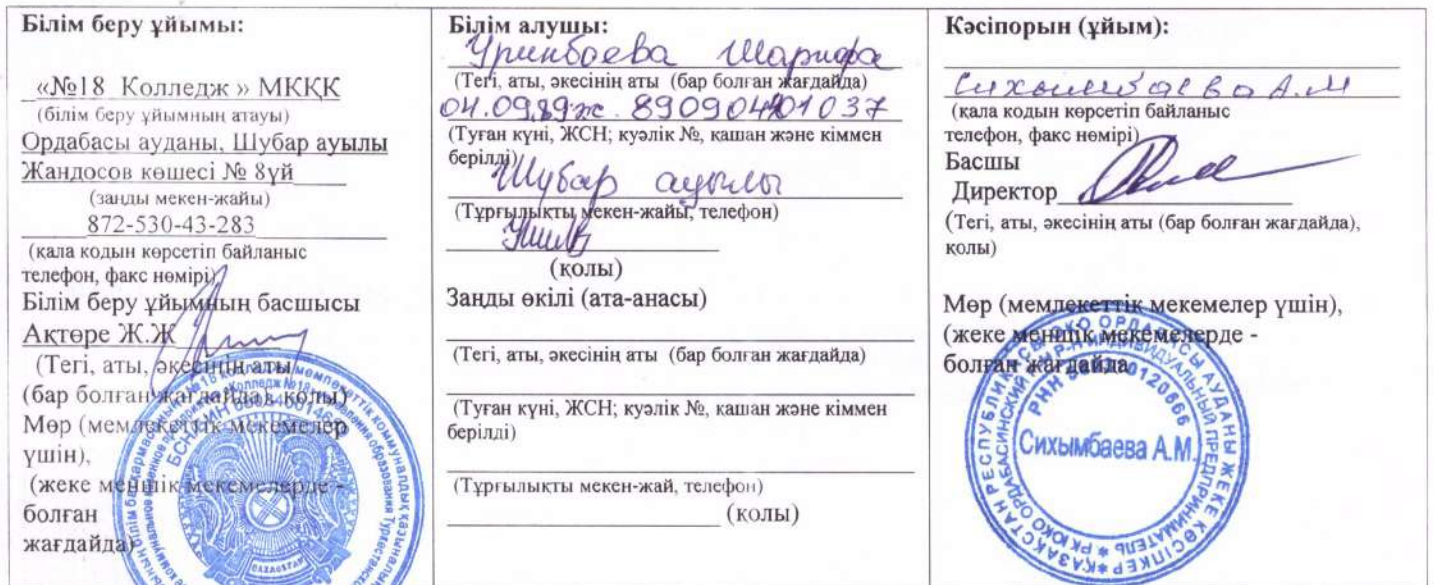 Білім беру ұйымы:
«№18 Колледж » МКҚК
(білім беру ұйымның атауы)
Ордабасы ауданы, Шубар ауылы
Жандосов көшесі № 8үй
(заңды мекен-жайы)
872-530-43-283
(қала кодын көрсетіп байланыс
телефон, факс нөмірі)
Білім беру ұйымның басшысы
Ақтөре Ж.Ж
(Тегі, аты, әкесінің аты
(бар болған жағдайда), қолы)
Мөр (мемлекеттік мекемелер
үшін),
(жеке меншік мекемелерде -
болған
жағдайда)
Білім алушы:
Уринбоева Шарифа
(Тегі, аты, әкесінің аты (бар болған жағдайда)
04.09.89ж. 890904401037
(Туған күні, ЖСН; куәлік №, қашан және кіммен
берілді)
Шубар ауылы
(Тұрғылықты мекен-жайы, телефон)
(қолы)
Заңды өкілі (ата-анасы)
(Тегі, аты, әкесінің аты (бар болған жағдайда)
(Туған күні, ЖСН; куәлік №, қашан және кіммен
берілді)
(Тұрғылықты мекен-жай, телефон)
(қолы)
Кәсіпорын (ұйым):
Сихымбаева А.М
(қала кодын көрсетіп байланыс
телефон, факс нөмірі)
Басшы
Директор
(Тегі, аты, әкесінің аты (бар болған жағдайда),
қолы)
Мөр (мемлекеттік мекемелер үшін),
(жеке меншік мекемелерде -
болған жағдайда
Сихымбаева А.М.